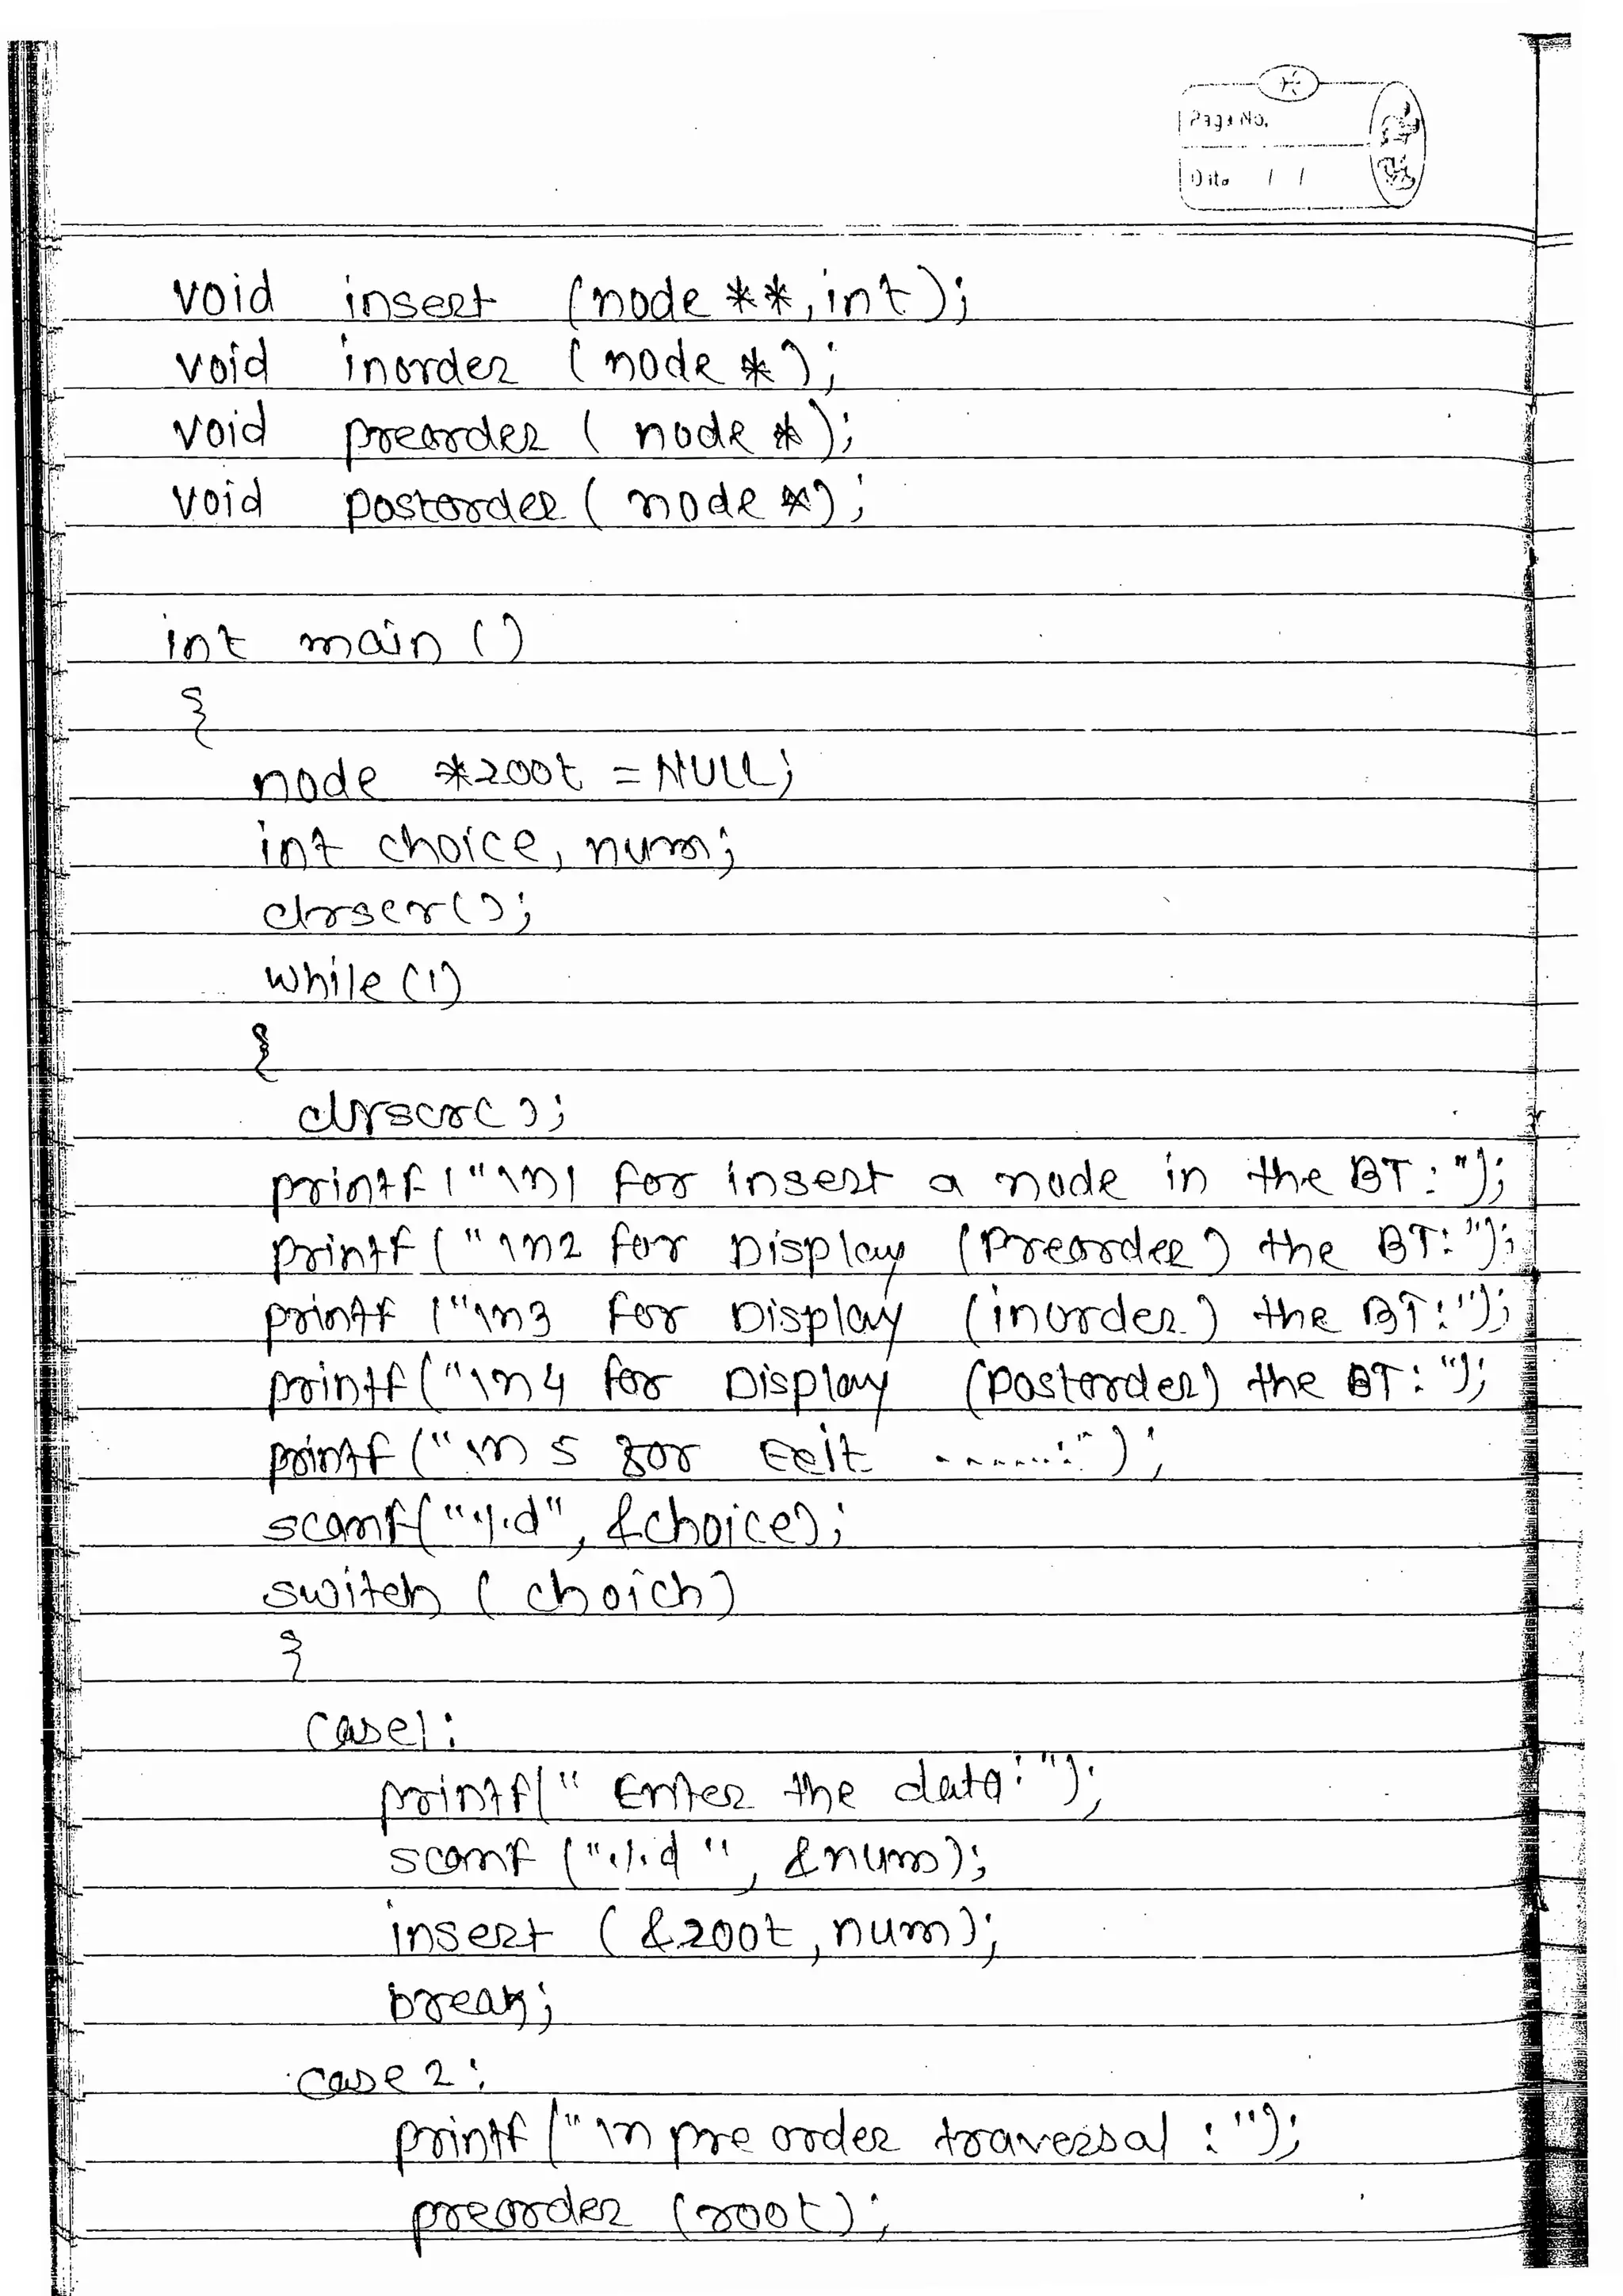 Page No.
Date / /
void insert (node **, int);
void inorder (node *);
void preorder ( node *);
void postorder ( node *);
int main ()
{
node *root = NULL;
int choice, num;
clrscr();
while (1)
{
clrscr();
printf ("\n1 for insert a node in the BT : ");
printf ( "\n2 for Display (Preorder) the BT: ");
printf ("\n3 for Display (inorder) the BT: ");
printf ("\n4 for Display (Postorder) the BT : ");
printf ("\n 5 for Exit .......: ");
scanf("%d", &choice);
switch ( choich)
{
case1:
printf(" Enter the data: ");
scanf ("%d ", &num);
insert ( &root, num);
break;
case 2:
printf ("\n pre order traversal : ");
preorder (root);